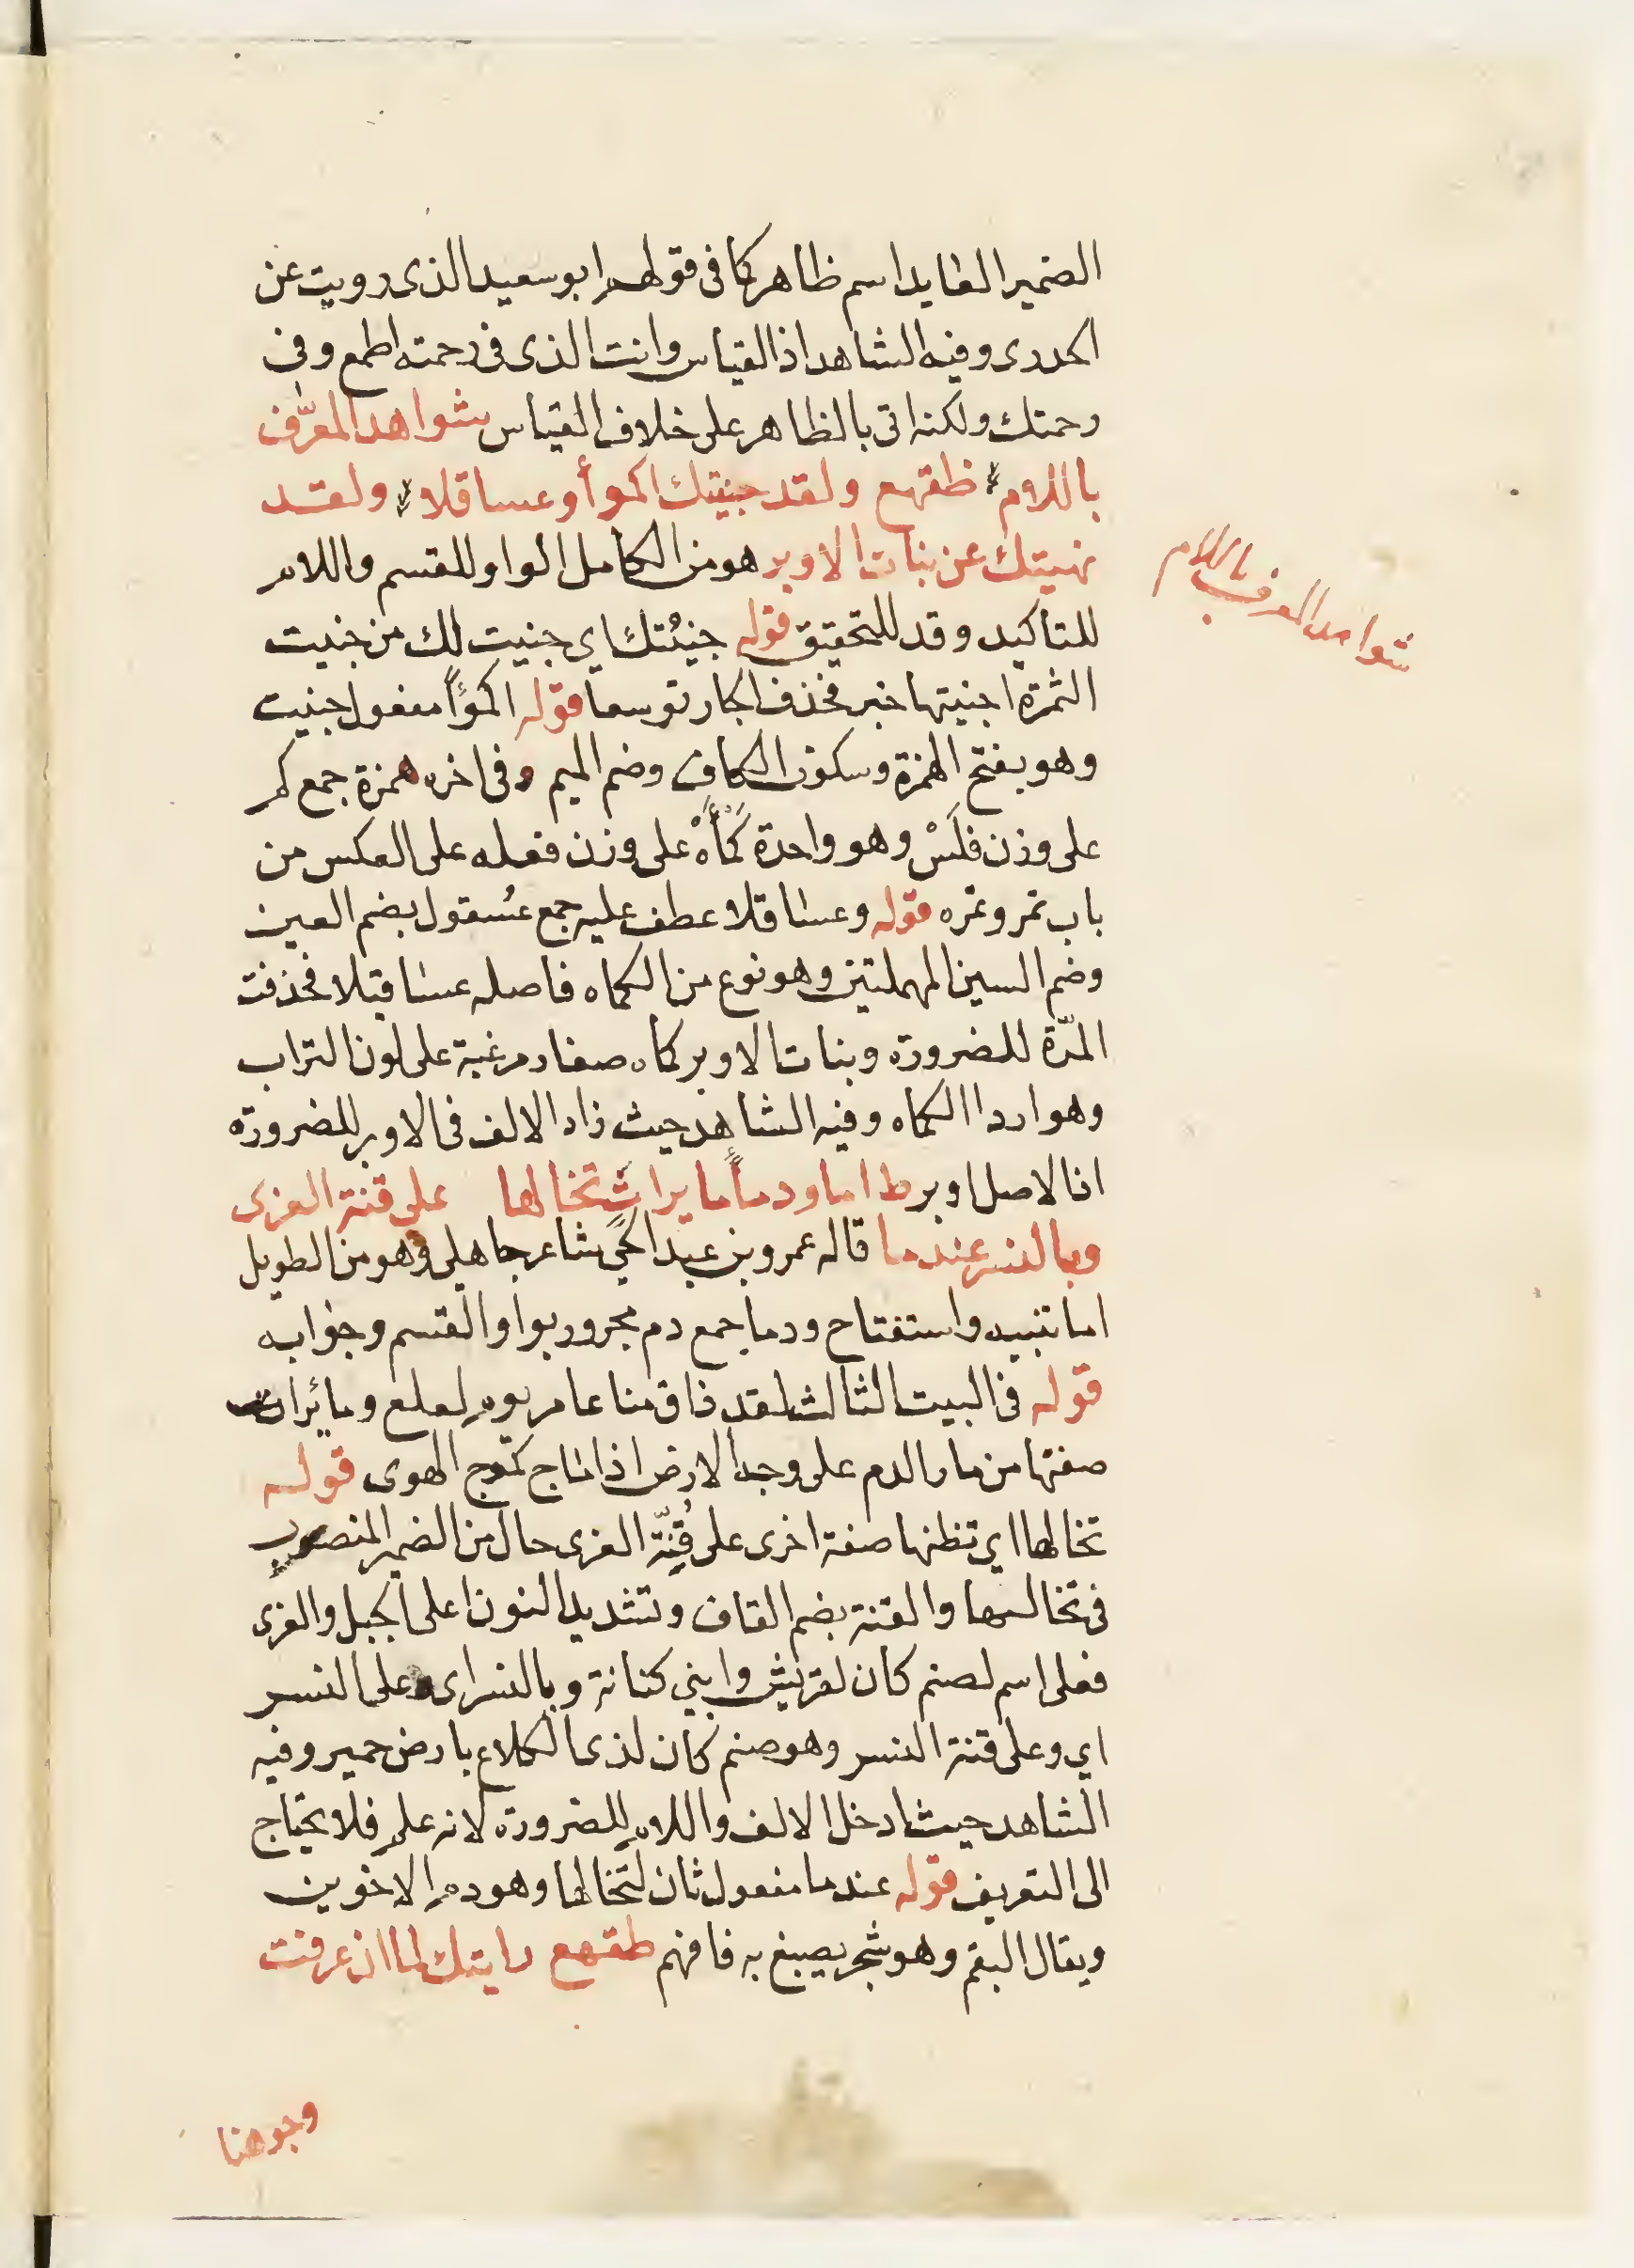 الضمير العايد اسم ظاهر كما فى قولهم ابو سعيد الذى رويت عن
الخدرى وفيه الشاهد اذ القياس وانت الذى فى رحمته اطمع وفى
رحمتك ولكنه اتى بالظاهر على خلاف القياس شواهد المعرّف
باللام ظقهع ولقد جنيتك اكموأ وعساقلا ولقد
نهيتك عن بنات الاوبر هو من الكامل الواو للقسم واللام
للتاكيد وقد للتحقيق قوله جنيتك اي جنيت لك من جنيت
الثمرة اجنيتها خبر فحذف الجار توسعا قوله اكموًا مفعول جنيت
وهو بفتح الهمزة وسكون الكاف وضم الميم وفى اخره همزة جمع كم
على وزن فلس وهو واحدة كمأه على وزن فعله على العكس من
باب تمر وتمره قوله وعساقلا عطف عليه جمع عسقول بضم العين
وضم السين المهملتين وهو نوع من الكماه فاصله عساقيلا فحذفت
المدّة للضرورة وبنات الاوبر كماه صغار مرغبة على لون التراب
وهو اردا الكماه وفيه الشاهد حيث زاد الالف فى الاوبر للضرورة
اذا لاصل اوبر ط اما ودماً ما يرات تخالها على قنة العزى
وبالنسر عندما قاله عمرو بن عبد الحي شاعر جاهلى وهو من الطويل
اما تنبيه واستفتاح ودما جمع دم مجرور بواو القسم وجوابه
قوله فى البيت الثالث لقد ذاق منا عامر يوم لعلع ومائرات
صفتها من مار الدم على وجه الارض اذا ماج كتموج الهوى قوله
تخالها اي تظنها صفة اخرى على قُنّة العزى حال من الضمير المنصوب
فى تخالها والقنة بضم القاف وتشديد النون اعلى الجبل والعزى
فعلى اسم لصنم كان لقريش وابني كنانة وبالنسر اى على النسر
اي وعلى قنة النسر وهو صنم كان لذى الكلاع بارض حمير وفيه
الشاهد حيث ادخل الالف واللام للضرورة لانه علم فلا يحتاج
الى التعريف قوله عندما مفعول ثان لتخالها وهو دم الاخوين
ويقال البقم وهو شجر يصبغ به فافهم طقهع رايتك لما ان عرفت
وجوهنا
شواهد المعرف باللام